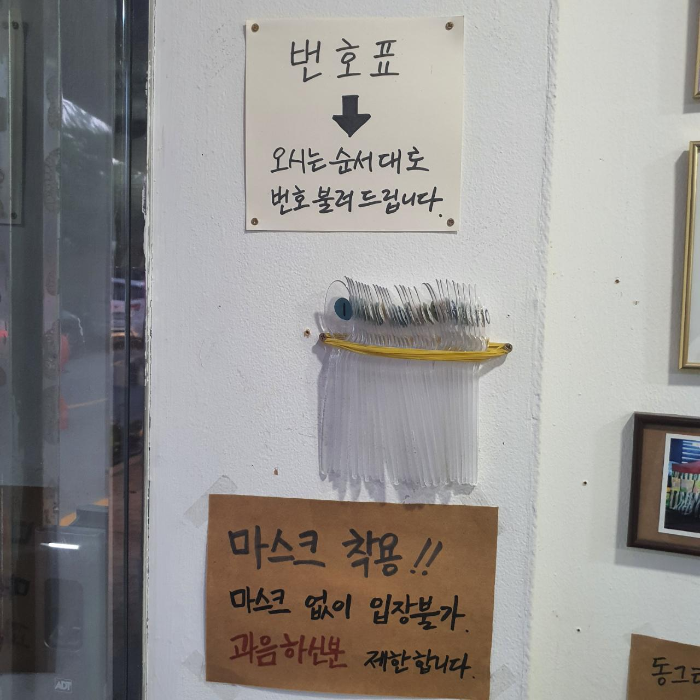 번호표
오시는 순서대로
번호 불려 드립니다.
1
마스크 착용!!
마스크 없이 입장불가.
과음하신분 제한합니다.
동그
ADT